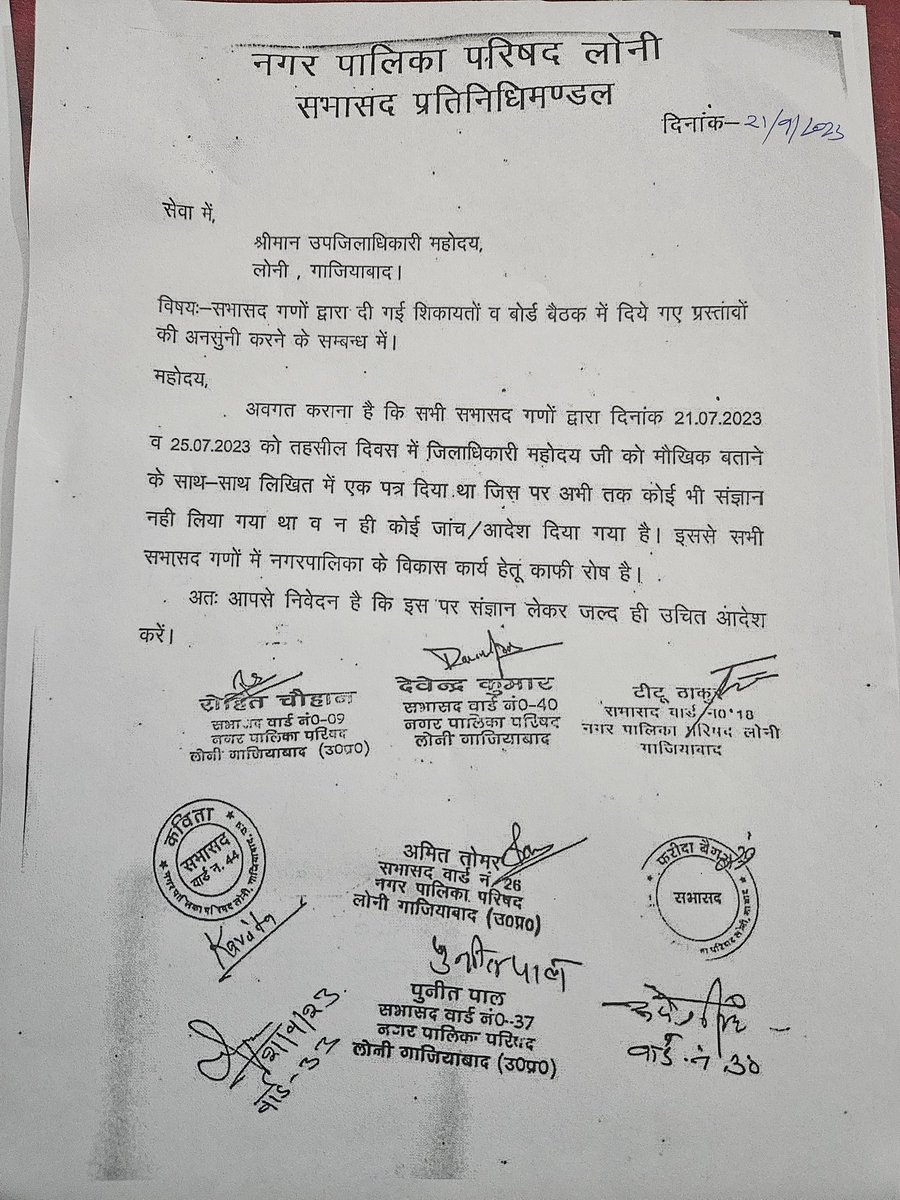 नगर पालिका परिषद लोनी
सभासद प्रतिनिधिमण्डल
दिनांक–21/9/2023
सेवा में,
श्रीमान उपजिलाधिकारी महोदय,
लोनी , गाजियाबाद।
विषयः–सभासद गणों द्वारा दी गई शिकायतों व बोर्ड बैठक में दिये गए प्रस्तावों
की अनसुनी करने के सम्बन्ध में।
महोदय,
अवगत कराना है कि सभी सभासद गणों द्वारा दिनांक 21.07.2023
व 25.07.2023 को तहसील दिवस में जिलाधिकारी महोदय जी को मौखिक बताने
के साथ–साथ लिखित में एक पत्र दिया था जिस पर अभी तक कोई भी संज्ञान
नही लिया गया था व न ही कोई जांच/आदेश दिया गया है। इससे सभी
सभासद गणों में नगरपालिका के विकास कार्य हेतू काफी रोष है।
अतः आपसे निवेदन है कि इस पर संज्ञान लेकर जल्द ही उचित आदेश
करें।
रोहित चौहान
सभासद वार्ड नं0-09
नगर पालिका परिषद
लोनी गाजियाबाद (उ0प्र0)
देवेन्द्र कुमार
सभासद वार्ड नं0-40
नगर पालिका परिषद
लोनी गाजियाबाद
टीटू ठाकुर
वार्ड न0 18
नगर पालिका परिषद लोनी
गाजियाबाद
कविता
सभासद
वार्ड न. 44
नगर पालिका परिषद लोनी, गाजियाबाद, उ.प्र.
Kavita
अमित तोमर
सभासद वार्ड नं. 26
नगर पालिका परिषद
लोनी गाजियाबाद (उ0प्र0)
फरीदा बेगम
सभासद
परिषद लोनी,
पुनीत पाल
पुनीत पाल
सभासद वार्ड नं0-37
नगर पालिका परिषद
लोनी गाजियाबाद (उ0प्र0)
21/9/23
वार्ड-33
वार्ड नं 30